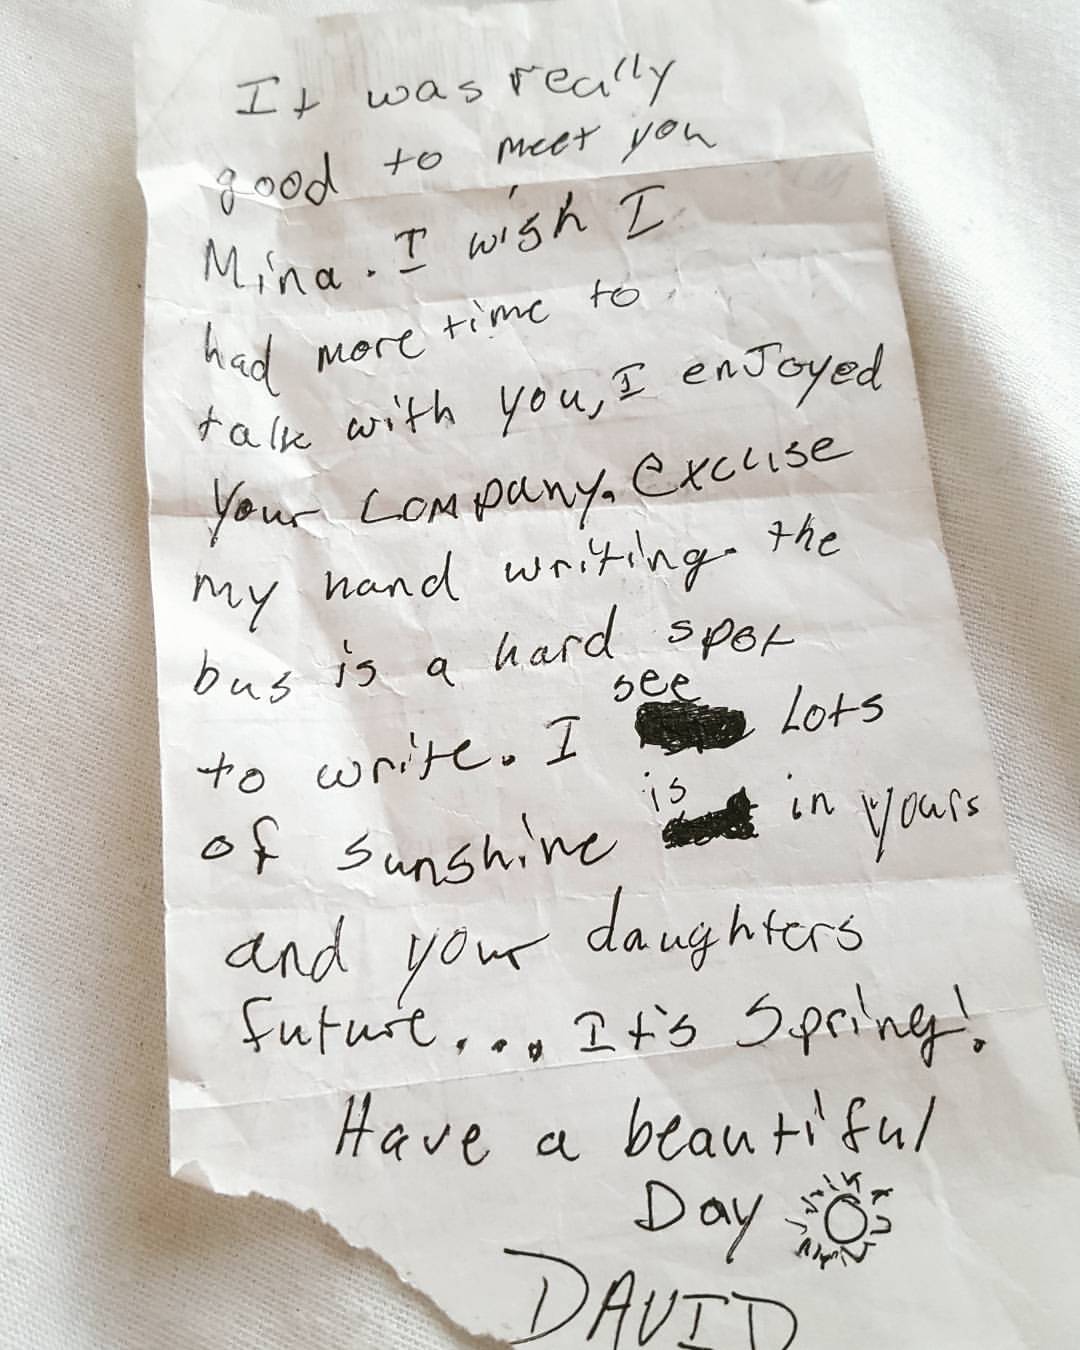 It was really
good to meet you
Mina. I wish I
had more time to
talk with you, I enJoyed
your company. Excuse
my hand writing. the
bus is a hard spot
to write. I see Lots
of sunshine is in yours
and your daughters
future.... It's Spring!
Have a beautiful
Day
DAVID